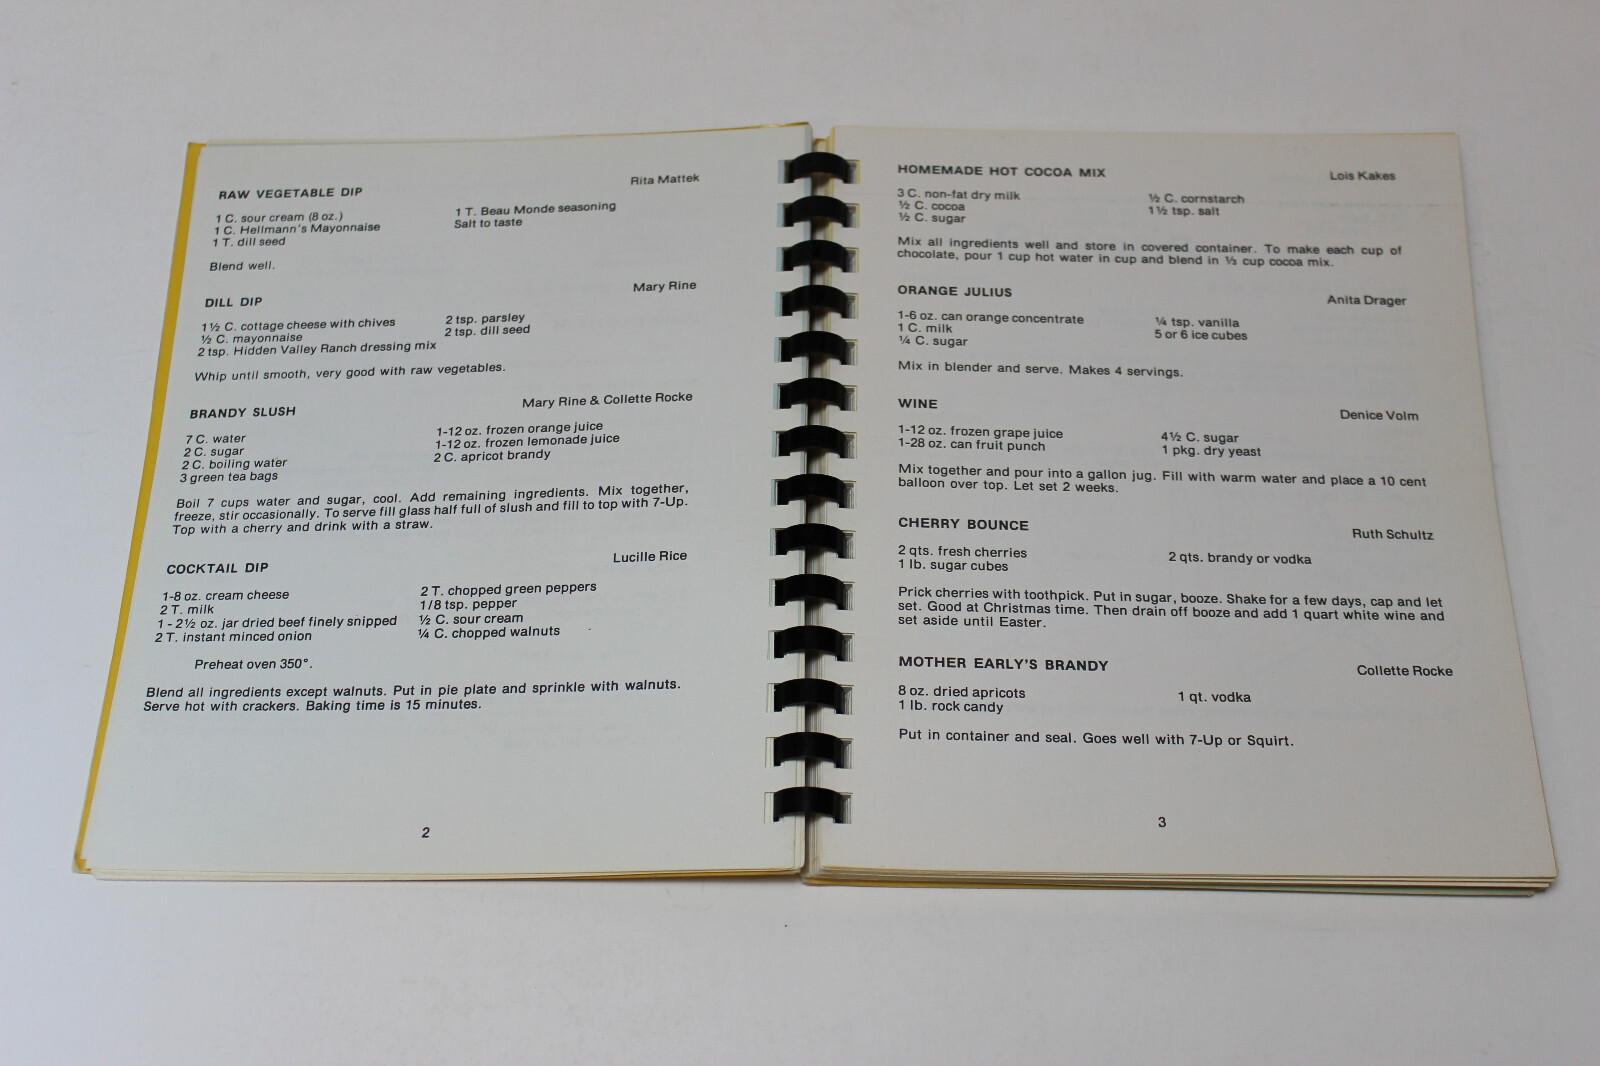 RAW VEGETABLE DIP
Rita Mattek
1 C. sour cream (8 oz.)
1 C. Hellmann's Mayonnaise
1 T. dill seed
1 T. Beau Monde seasoning
Salt to taste
Blend well.
DILL DIP
Mary Rine
1 ½ C. cottage cheese with chives
½ C. mayonnaise
2 tsp. Hidden Valley Ranch dressing mix
2 tsp. parsley
2 tsp. dill seed
Whip until smooth, very good with raw vegetables.
BRANDY SLUSH
Mary Rine & Collette Rocke
7 C. water
2 C. sugar
2 C. boiling water
3 green tea bags
1-12 oz. frozen orange juice
1-12 oz. frozen lemonade juice
2 C. apricot brandy
Boil 7 cups water and sugar, cool. Add remaining ingredients. Mix together,
freeze, stir occasionally. To serve fill glass half full of slush and fill to top with 7-Up.
Top with a cherry and drink with a straw.
COCKTAIL DIP
Lucille Rice
1-8 oz. cream cheese
2 T. milk
1 - 2½ oz. jar dried beef finely snipped
2 T. instant minced onion
2 T. chopped green peppers
1/8 tsp. pepper
½ C. sour cream
¼ C. chopped walnuts
Preheat oven 350°.
Blend all ingredients except walnuts. Put in pie plate and sprinkle with walnuts.
Serve hot with crackers. Baking time is 15 minutes.
2
HOMEMADE HOT COCOA MIX
Lois Kakes
3 C. non-fat dry milk
½ C. cocoa
½ C. sugar
½ C. cornstarch
1½ tsp. salt
Mix all ingredients well and store in covered container. To make each cup of
chocolate, pour 1 cup hot water in cup and blend in ⅓ cup cocoa mix.
ORANGE JULIUS
Anita Drager
1-6 oz. can orange concentrate
1 C. milk
¼ C. sugar
¼ tsp. vanilla
5 or 6 ice cubes
Mix in blender and serve. Makes 4 servings.
WINE
Denice Volm
1-12 oz. frozen grape juice
1-28 oz. can fruit punch
4½ C. sugar
1 pkg. dry yeast
Mix together and pour into a gallon jug. Fill with warm water and place a 10 cent
balloon over top. Let set 2 weeks.
CHERRY BOUNCE
Ruth Schultz
2 qts. fresh cherries
1 lb. sugar cubes
2 qts. brandy or vodka
Prick cherries with toothpick. Put in sugar, booze. Shake for a few days, cap and let
set. Good at Christmas time. Then drain off booze and add 1 quart white wine and
set aside until Easter.
MOTHER EARLY'S BRANDY
Collette Rocke
8 oz. dried apricots
1 lb. rock candy
1 qt. vodka
Put in container and seal. Goes well with 7-Up or Squirt.
3